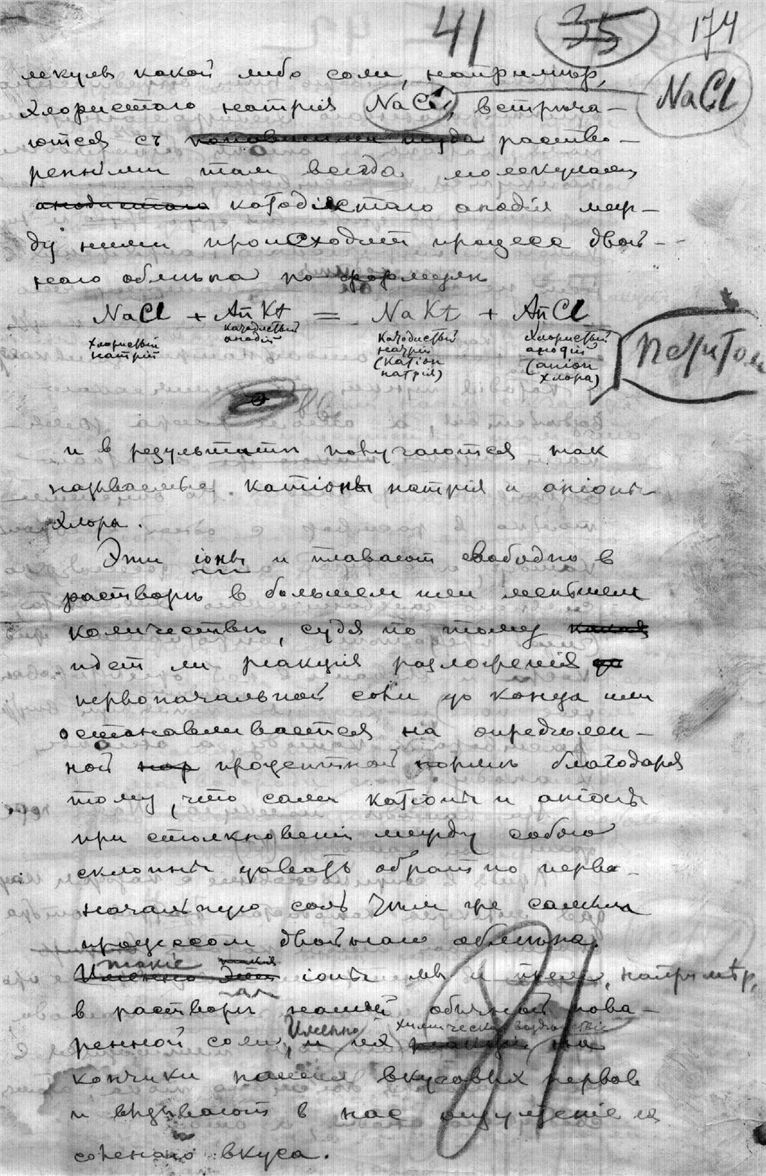 41 35 174
лекулы какой либо соли, например,
хлористаго натрія NaCl, встреча- NaCl
ются съ раство-
ренными там всегда молекулами
катодистаго анодія меж-
ду ними происходит процесс двой-
ного обмѣна по формулѣ
NaCl + An Kt = Na Kt + An Cl
хлористый натрій
катодистый анодій
катодистый натрій (катіон натрія)
хлористый анодій (аніон хлора)
петитом
и в результатѣ получаются так
называемые катіоны натрія и аніоны
хлора.
Эти іоны и плавают свободно в
растворѣ в большем или меньшем
количествѣ, судя по тому
идет ли реакція разложенія
первоначальной соли до конца или
останавливается на опредѣлен-
ной процентной нормѣ благодаря
тому, что сами катіоны и аніоны
при столкновеніи между собою
склонны давать обратно перво-
начальную соль тѣм же самым
процессом двойного обмѣна.
такіе іоны мы и пьем, напримѣр,
в растворѣ нашей обычной пова-
ренной соли, Именно химическое воздѣйствіе на
кончики наших вкусовых нервов
и вызывают в нас ощущеніе
соленого вкуса.